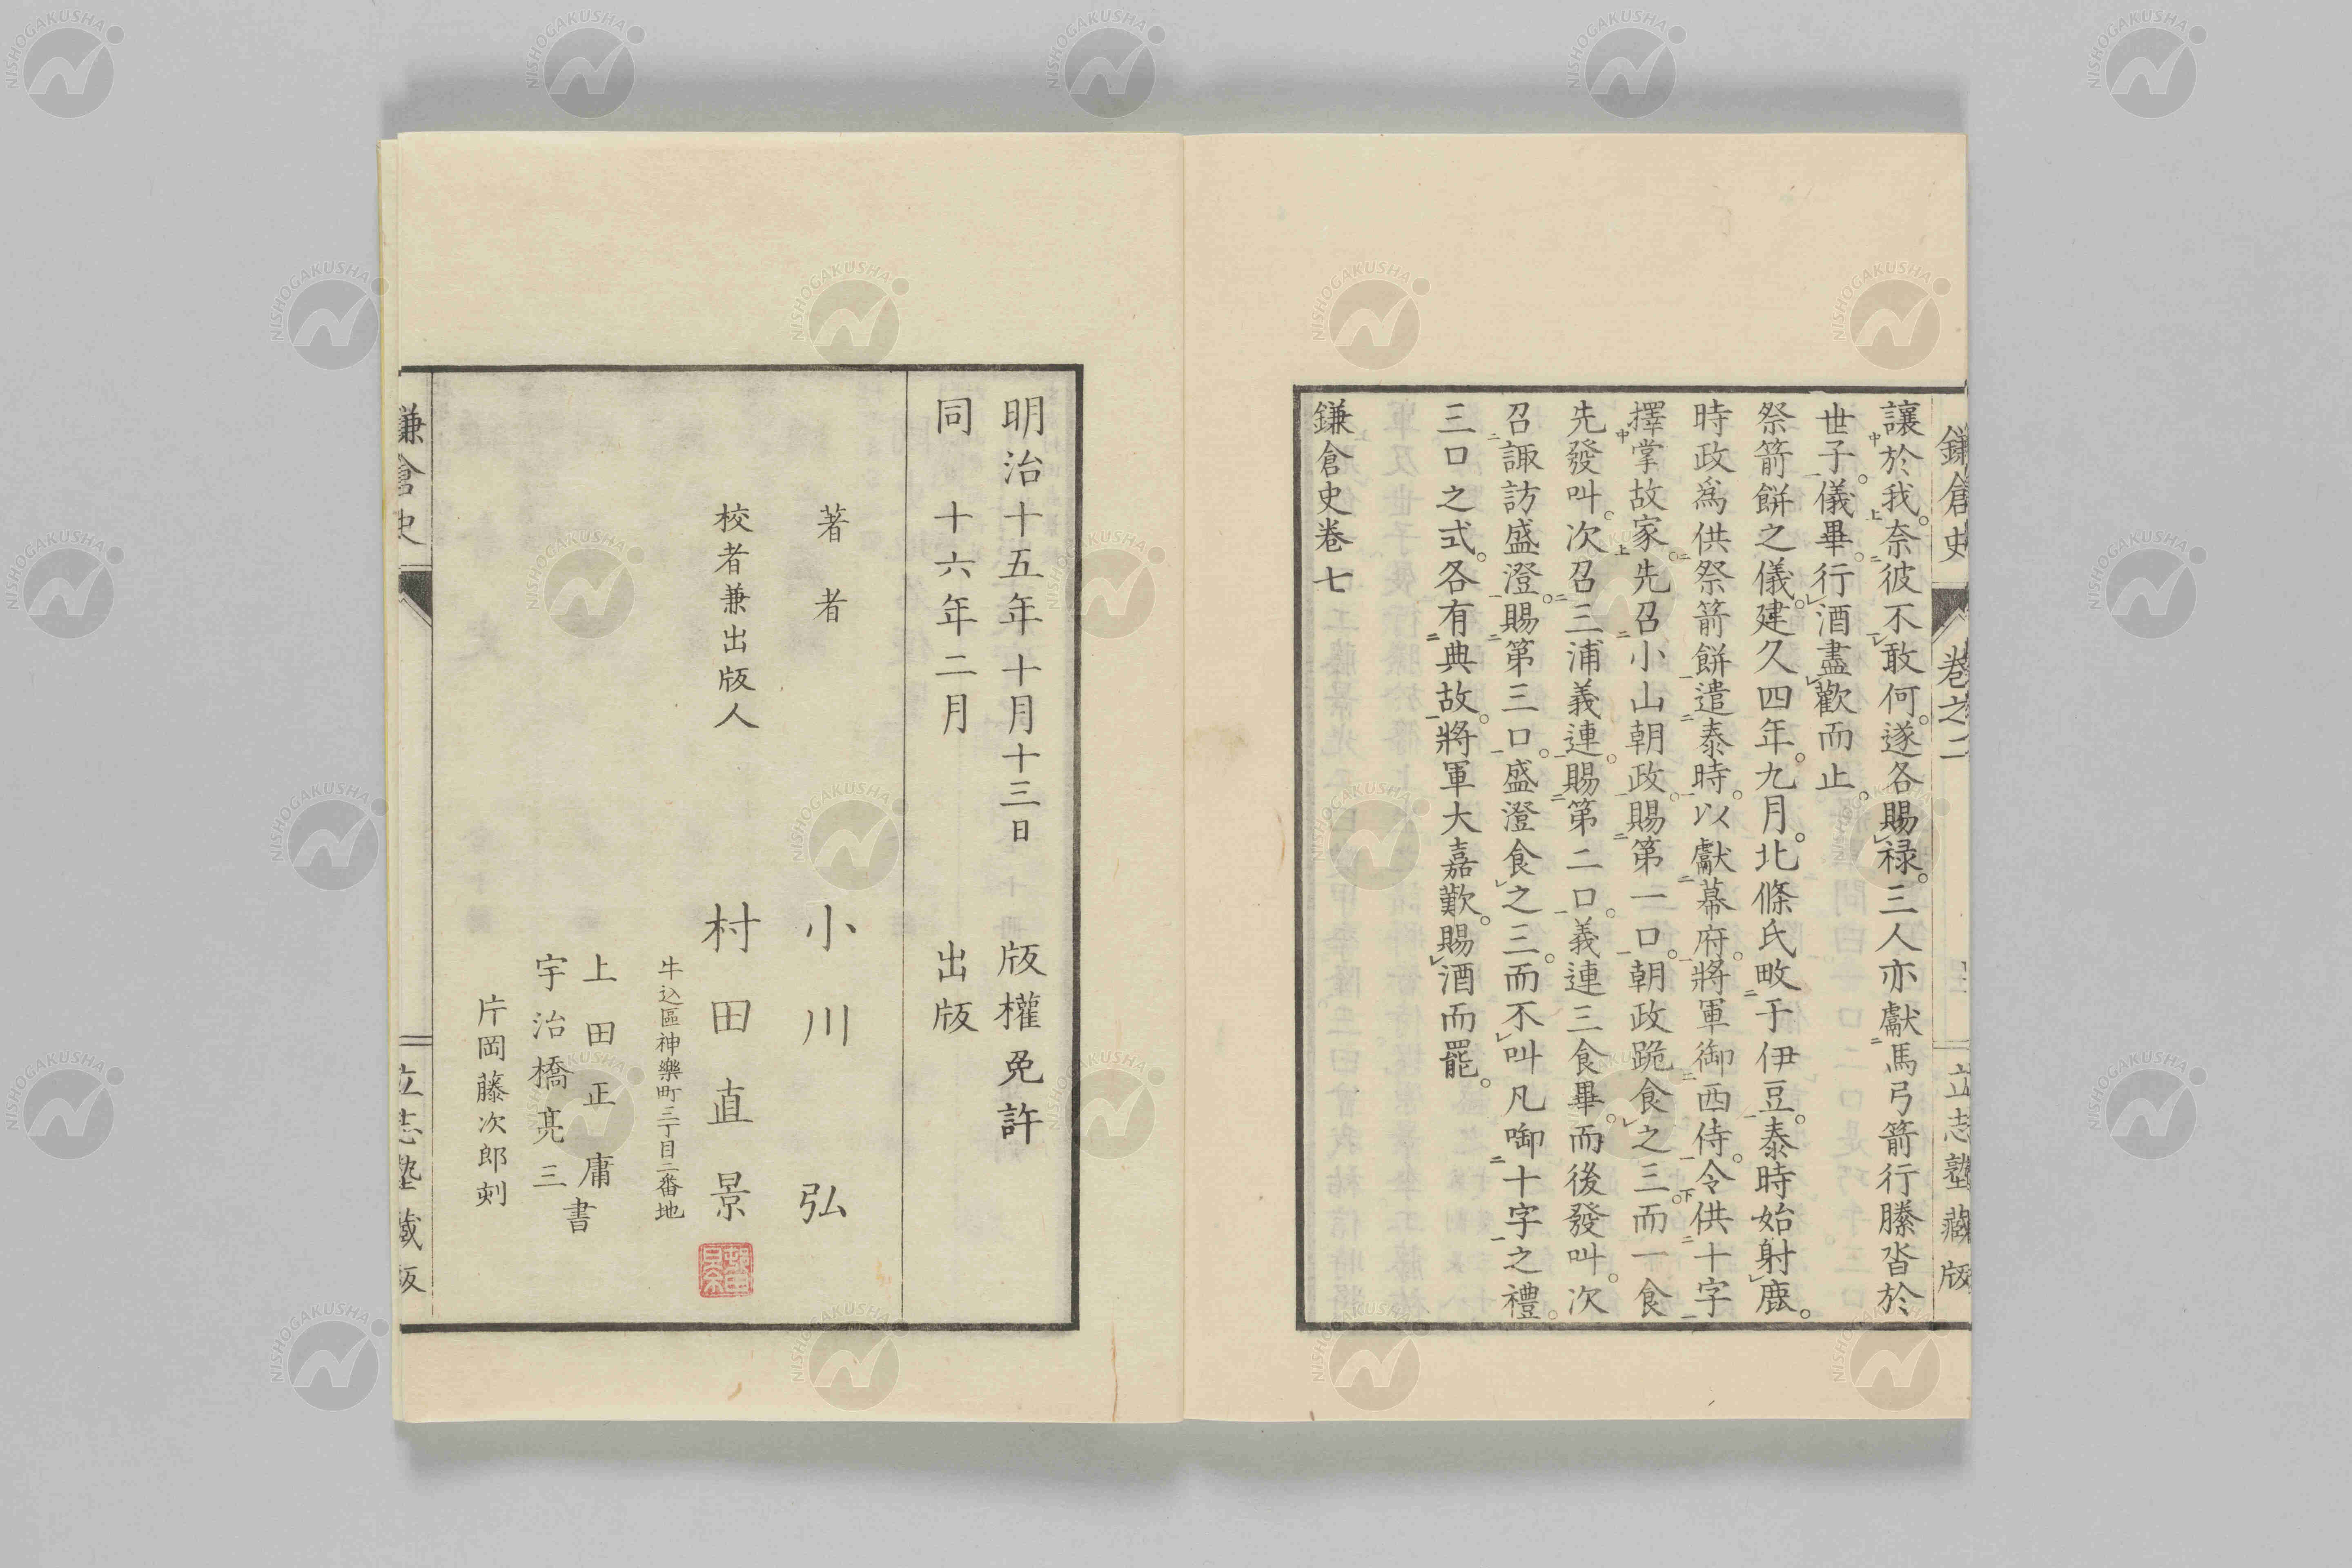 鎌倉史 卷之二 立志塾藏版
讓於我。奈彼不敢何。遂各賜祿。三人亦獻馬弓箭行縢沓於
世子。儀畢。行酒盡歡而止。
祭箭餅之儀。建久四年。九月。北條氏畋于伊豆。泰時始射鹿。
時政爲供祭箭餅。遣泰時。以獻幕府。將軍御西侍。令供十字
擇掌故家。先召小山朝政。賜第一口。朝政跪食之三。而一食
先發叫。次召三浦義連。賜第二口。義連三食畢。而後發叫。次
召諏訪盛澄。賜第三口。盛澄食之三。而不叫凡啣十字之禮。
三口之式。各有典故。將軍大嘉歎。賜酒而罷。
鎌倉史卷七
明治十五年十月十三日 版權免許
同 十六年二月 出版
著者 小川弘
校者兼出版人 村田直景
牛込區神樂町三丁目二番地
上田正庸
宇治橋亮三
書
片岡藤次郎刻
鎌倉史 立志塾藏版
NISHOGAKUSHA